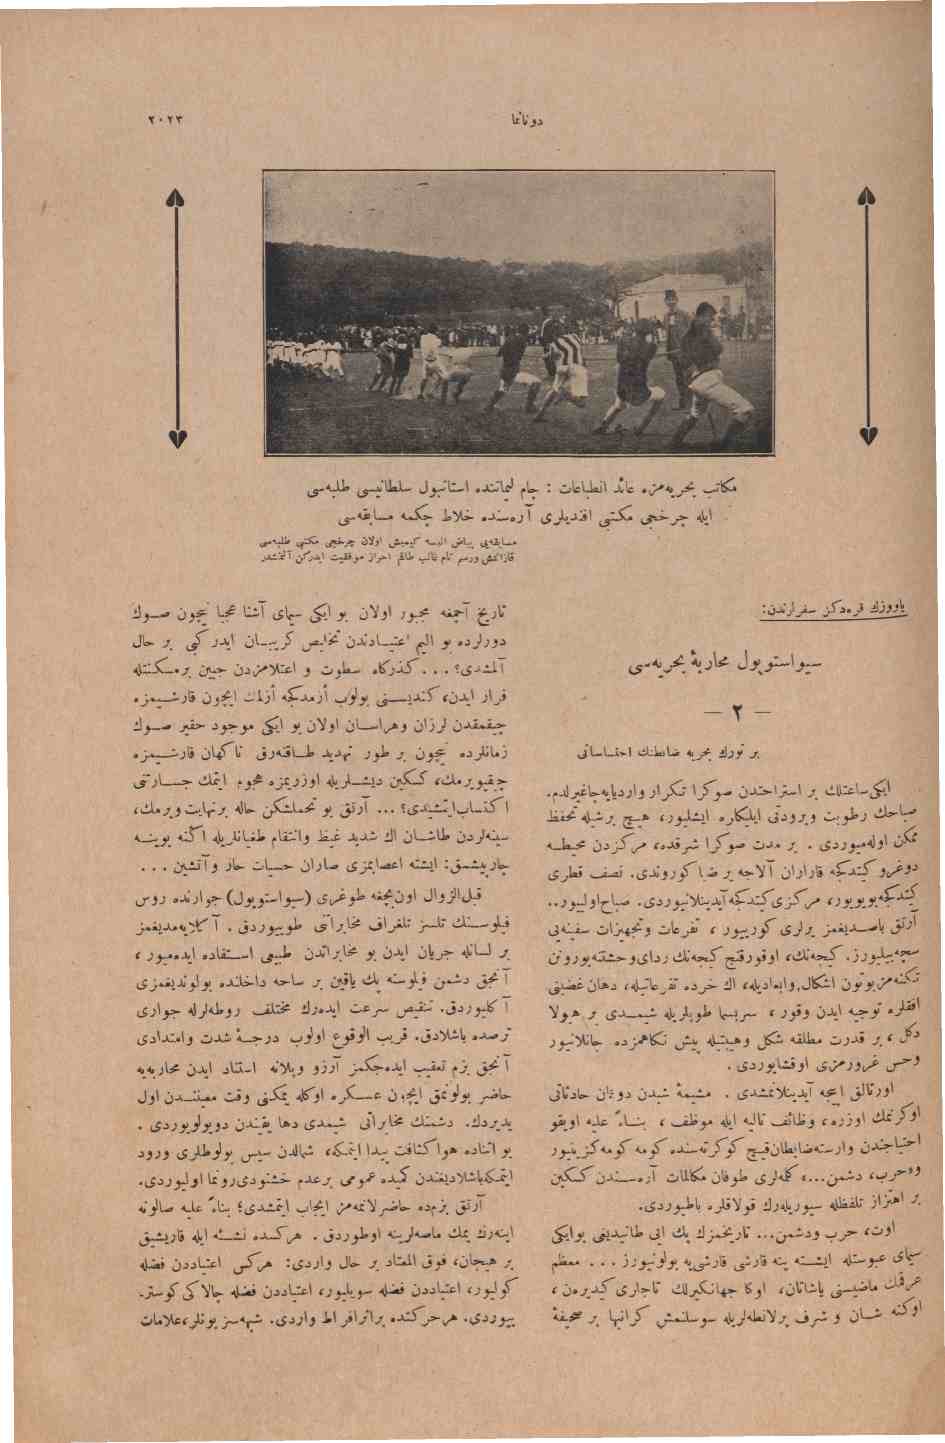 دونانما
٢٠٢٣
مكاتب بحریه‌مزه عائد انطباعات : چام لیماننده استانبول سلطانیسی طلبه‌سی
ایله چرخجی مكتبی افندیلری آره‌سنده خلاط چكمه مسابقه‌سی
مسابقه‌یی بیاض البسه كیمش اولان چرخجی مكتبی طلبه‌سی
قازانمش ورسم تام غالب طاقم احراز موفقیت ایدركن آلنمشدر
یاووزك قره‌دكز سفرلرندن:
سیواستوپول محاربهٔ بحریه‌سی
— ٢ —
بر تورك بحریه ضابطنك احتساساتی
ایكی ساعتلك بر استراحتدن صوكرا تكرار واردیایه چاغیرلدم.
صباحك رطوبت وبرودتی ایلیكلره ایشلیور، هیچ برشیله تحفظ
ممكن اوله‌میوردی . بر مدت صوكرا شرقده، مركزدن محیطه
دوغرو كیتدكجه قاراران آلاجه بر ضیا كوروندی. نصف قطری
كیتدكجه بویویور، مركزی كیتدكجه آیدینلانیوردی. صباح اولیور..
آرتق باصدیغمز یرلری كورییور ، تفرعات وتجهیزات سفینه‌یی
سچه‌بیلیورز. كیجه‌نك، اوقورقنج كیجه‌نك ردای وحشتنه بورونن
تكنه‌مز بوتون اشكال وابعادیله، اك خرده تفرعاتیله، دهان غضبنی
افقلره توجیه ایدن وقور ، سربسما طوپلریله شیمدی بر هیولا
دكل ، بر قدرت مطلقه شكل وهیبتیله پیش نكاهمزده جانلانیور
وحس غرورمزی اوقشایوردی .
اورتالق اییجه آیدینلانمشدی . مشیمهٔ شبدن دوغان حادثاتی
اوكرنمك اوزره، وظائف تالیه ایله موظف ، بناءً علیه اویقو
احتیاجندن وارسته ضابطان قیچ كوكرته‌سنده كومه كومه كزینیور
و«حرب، دشمن...» كلمه‌لری طوفان مكالمات آره‌سندن كسكین
بر اهتزاز تلفظله سیوریله‌رك قولاقلره باطیوردی.
اوت، حرب ودشمن... تاریخمزك پك ایی طانیدیغی بوایكی
سیمای عبوستله ایشته ینه قارشی قارشی‌یه بولونیورز . . . معظم
عرقمك ماضیسنی یاشاتان، اوكا جهانكیرلك تاجلری كیدیرن ،
اوكنه شان و شرف پرلانطه‌لریله سوسلنمش كرانبها بر صحیفهٔ
تاریخ آچمغه مجبور اولان بو ایكی سیمای آشنا عجبا نیچون صوك
دورلرده بو الیم اعتیادندن تخلیص كریبان ایدر كبی بر حال
آلمشدی؟ . . . كذركاه سطوت و اعتلامزدن جبین برمسكنتله
فرار ایدن، كندیسنی بولوب أزمدكجه أزلمك ایچون قارشیمزه
چیقمقدن لرزان وهراسان اولان بو ایكی موجود حقیر صوك
زمانلرده نیچون بر طور تهدید طاقنه‌رق ناكهان قارشیمزه
چیقیویرمك، كسكین دیشلریله اوزریمزه هجوم ایتمك جسارتنی
اكتساب ایتمشیدی؟ ... آرتق بو تحملشكن حاله بر نهایت ویرمك،
سینه‌لردن طاشان اك شدید غیظ وانتقام طغیانلریله اكنه بوینه
چارپیشمق: ایشته اعصابمزی صاران حسیات حار وآتشین . . .
قبل‌الزوال اون بچغه طوغری (سیواستوپول) جوارنده روس
فیلوسنك تلسز تلغراف مخابراتنی طویییوردق . آكلایه‌مدیغمز
بر لسانله جریان ایدن بو مخابراتدن طبیعی استفاده ایده‌میور ،
آنجق دشمن فیلوسنه پك یاقین بر ساحه داخلنده بولوندیغمزی
آكلیوردق. تنقیص سرعت ایده‌رك مختلف روطه‌لرله جواری
ترصده باشلادق. قریب الوقوع اولوب درجهٔ شدت وامتدادی
آنجق بزم تعقیب ایده‌جكمز آرزو وپلانه استناد ایدن محاربه‌یه
حاضر بولونمق ایچون عسكره اوكله یمكنی وقت معینندن اول
یدیردك. دشمنك مخابراتنی شیمدی دها یقیندن دویولویوردی .
بو اثناده هوا كثافت پیدا ایتمكه، شمالدن سیس بولوطلری ورود
ایتمكه باشلادیغندن كمیده عمومی برعدم خشنودی رونما اولیوردی.
آرتق بزم‌ده حاضرلانمه‌مز ایجاب ایتمشدی؛ بناءً علیه صالونه
اینه‌رك یمك ماصه‌لرینه اوطوردق . هركسده نشئه ایله قاریشیق
بر هیجان، فوق المعتاد بر حال واردی: هركس اعتیاددن فضله
كولیور، اعتیاددن فضله سویلیور، اعتیاددن فضله چالاكی كوستر-
ییوردی. هر حركتده بر اثر افراط واردی. شبهه‌سز بونلر، علامات